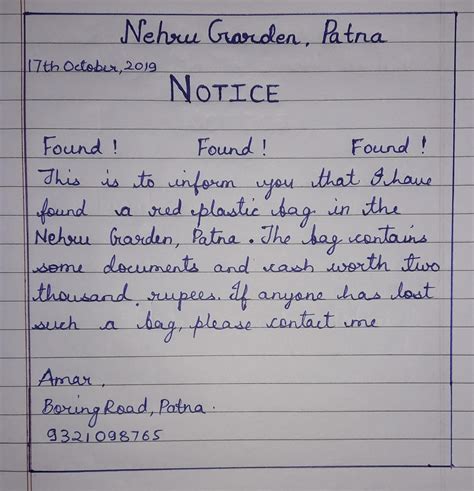 Nehru Garden, Patna
17th October, 2019
NOTICE
Found ! Found ! Found !
This is to inform you that I have
found a red plastic bag in the
Nehru Garden, Patna. The bag contains
some documents and cash worth two
thousand rupees. If anyone has lost
such a bag, please contact me
Amar,
Boring Road, Patna.
9321098765